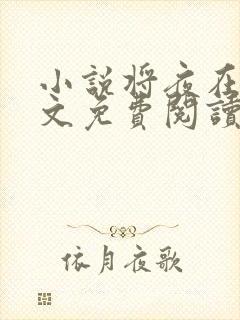 小説将夜在
文免費閱讀
依月夜歌